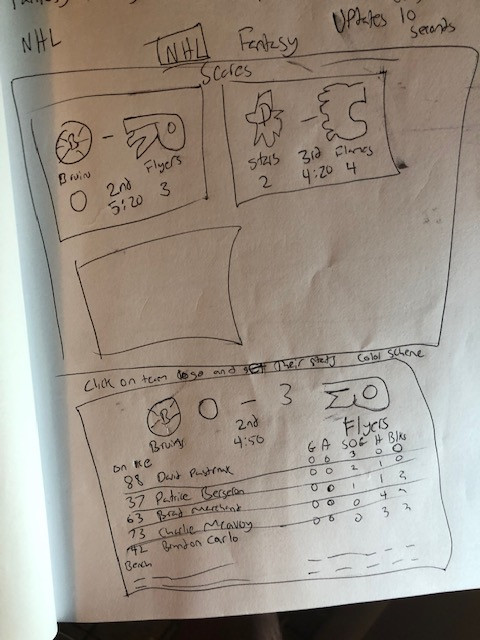 NHL
NHL
Fantasy
Updates 10 seconds
Scores
B
Bruins
Flyers
0
2nd
3
5:20
D
Stars
3rd
Flames
2
4:20
4
Click on team logo and get their stats color scheme
B
0 - 3
Bruins
2nd
4:50
Flyers
G A SOG H Blks
on ice
88 David Pastrnak 0 0 3 0 0
37 Patrice Bergeron 0 0 2 1 0
63 Brad Marchand 0 0 1 1
73 Charlie McAvoy 0 0 0 4
42 Brandon Carlo 0 0 0 3
Bench